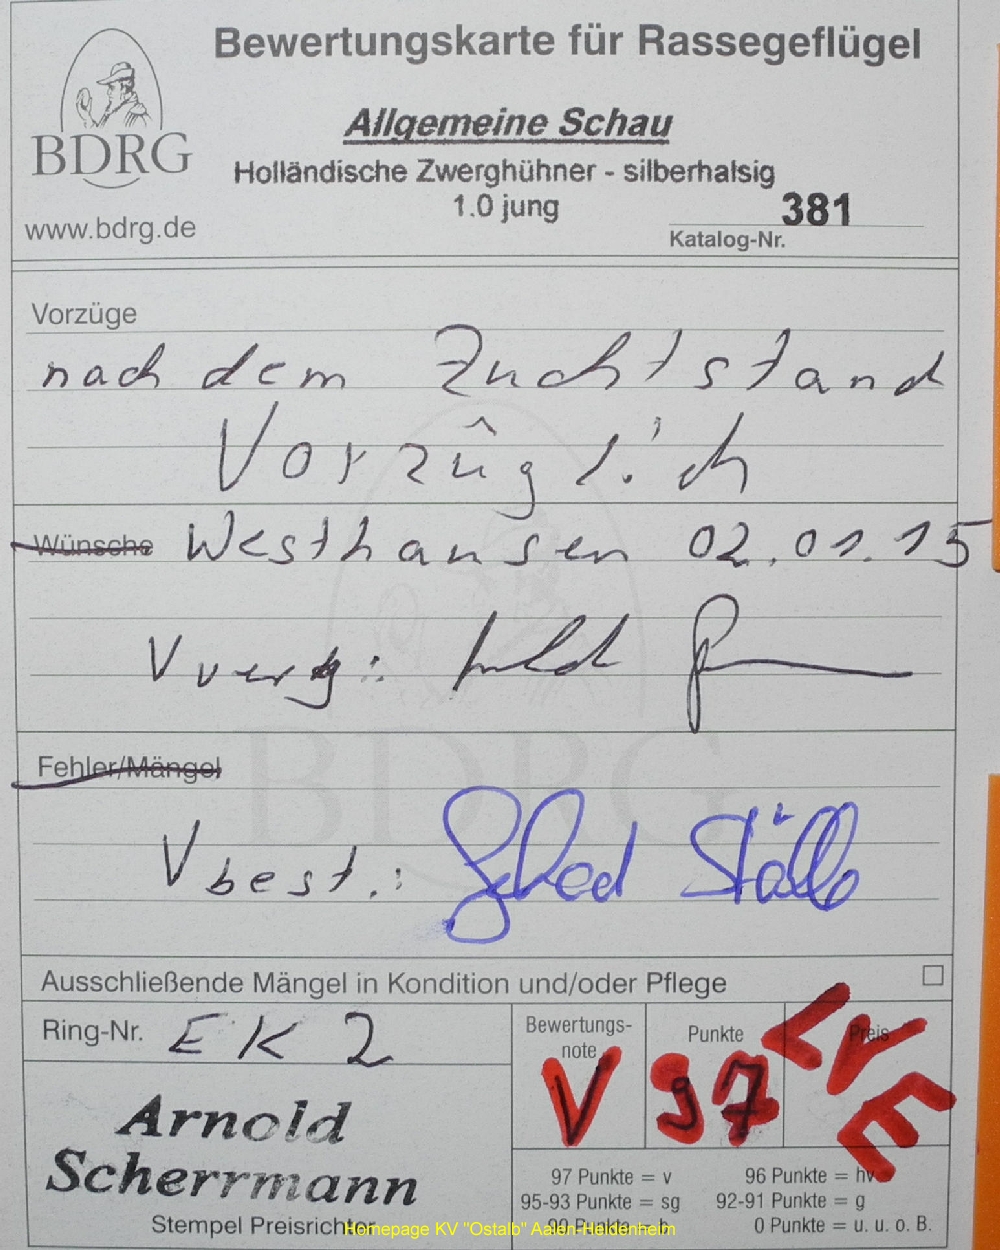 Bewertungskarte für Rassegeflügel
BDRG
www.bdrg.de
Allgemeine Schau
Holländische Zwerghühner - silberhalsig
1.0 jung
381
Katalog-Nr.
Vorzüge
nach dem Zuchtstand
Vorzüglich
Wünsche Westhausen 02.01.15
V verg.:
Fehler/Mängel
V best.:
BDRG
Ausschließende Mängel in Kondition und/oder Pflege
Ring-Nr. EK 2
Bewertungs-
note
V
Punkte
97
Preis
LVE
Arnold
Scherrmann
Stempel Preisrichter
97 Punkte = v 96 Punkte = hv
95-93 Punkte = sg 92-91 Punkte = g
90 Punkte = b 0 Punkte = u. u. o. B.
Homepage KV "Ostalb" Aalen-Heidenheim